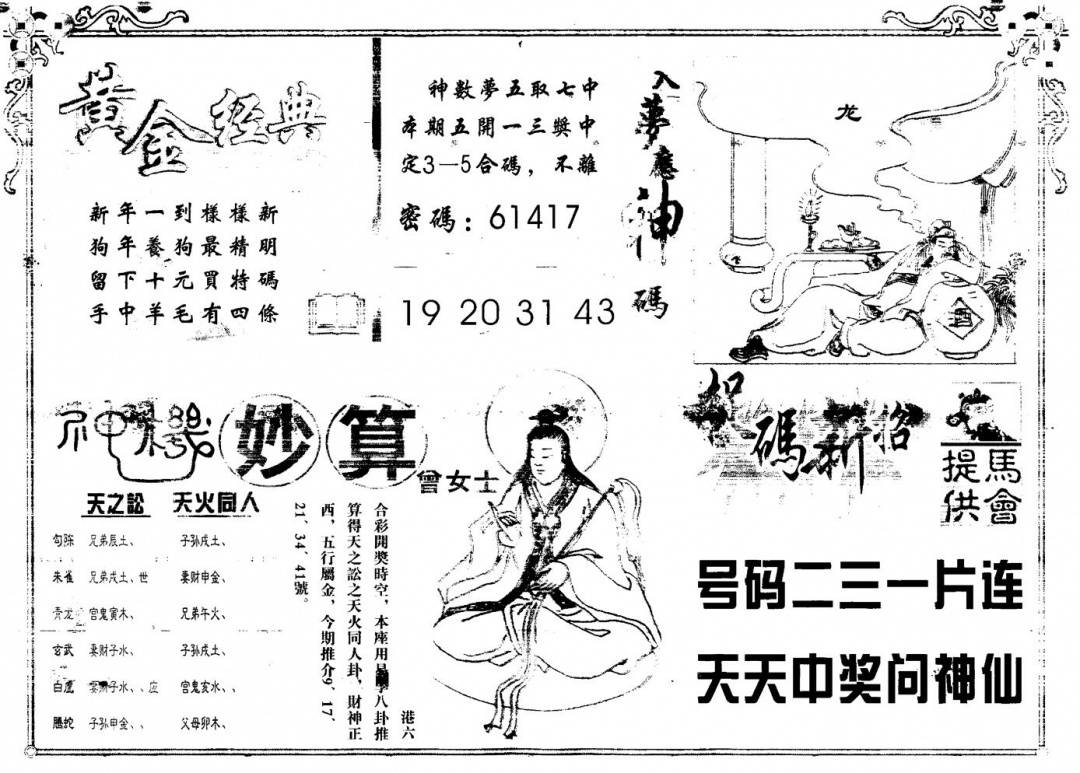 黃金經典
新年一到樣樣新
狗年養狗最精明
留下十元買特碼
手中羊毛有四條
神數夢五取七中
本期五開一三獎中
定3—5合碼，不離
密碼：61417
19 20 31 43
入夢應神碼
龙
酒
神機妙算
曾女士
天之訟 天火同人
勾陈 兄弟辰土、 子孙戌土、
朱雀 兄弟戌土、世 妻财申金、
青龙 官鬼寅木、 兄弟午火、
玄武 妻财子水、 子孙戌土、
白虎 妻财子水、、应 官鬼亥水、、
腾蛇 子孙申金、、 父母卯木、
港六
合彩開獎時空，本座用易學八卦推
算得天之訟之天火同人卦，財神正
西，五行屬金，今期推介9、17、
21、34、41號。
碼新
馬會
提供
号码二三一片连
天天中奖问神仙